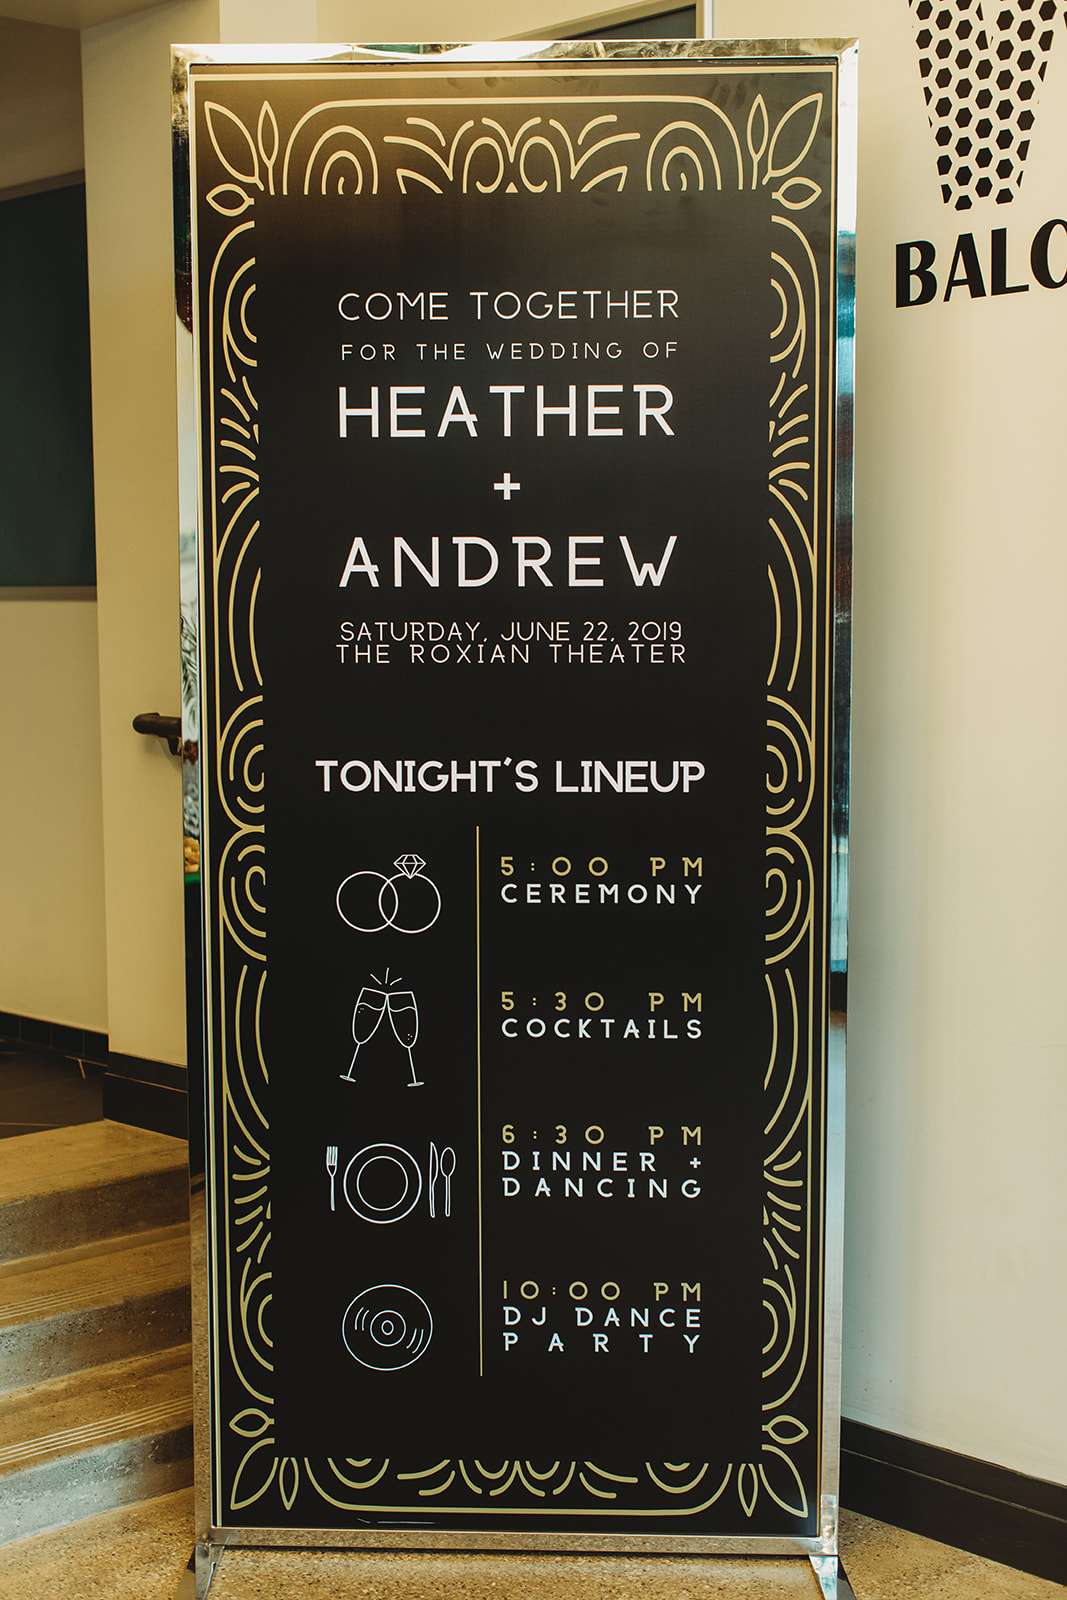 COME TOGETHER
FOR THE WEDDING OF
HEATHER
+
ANDREW
SATURDAY, JUNE 22, 2019
THE ROXIAN THEATER
TONIGHT'S LINEUP
5:00 PM
CEREMONY
5:30 PM
COCKTAILS
6:30 PM
DINNER +
DANCING
10:00 PM
DJ DANCE
PARTY